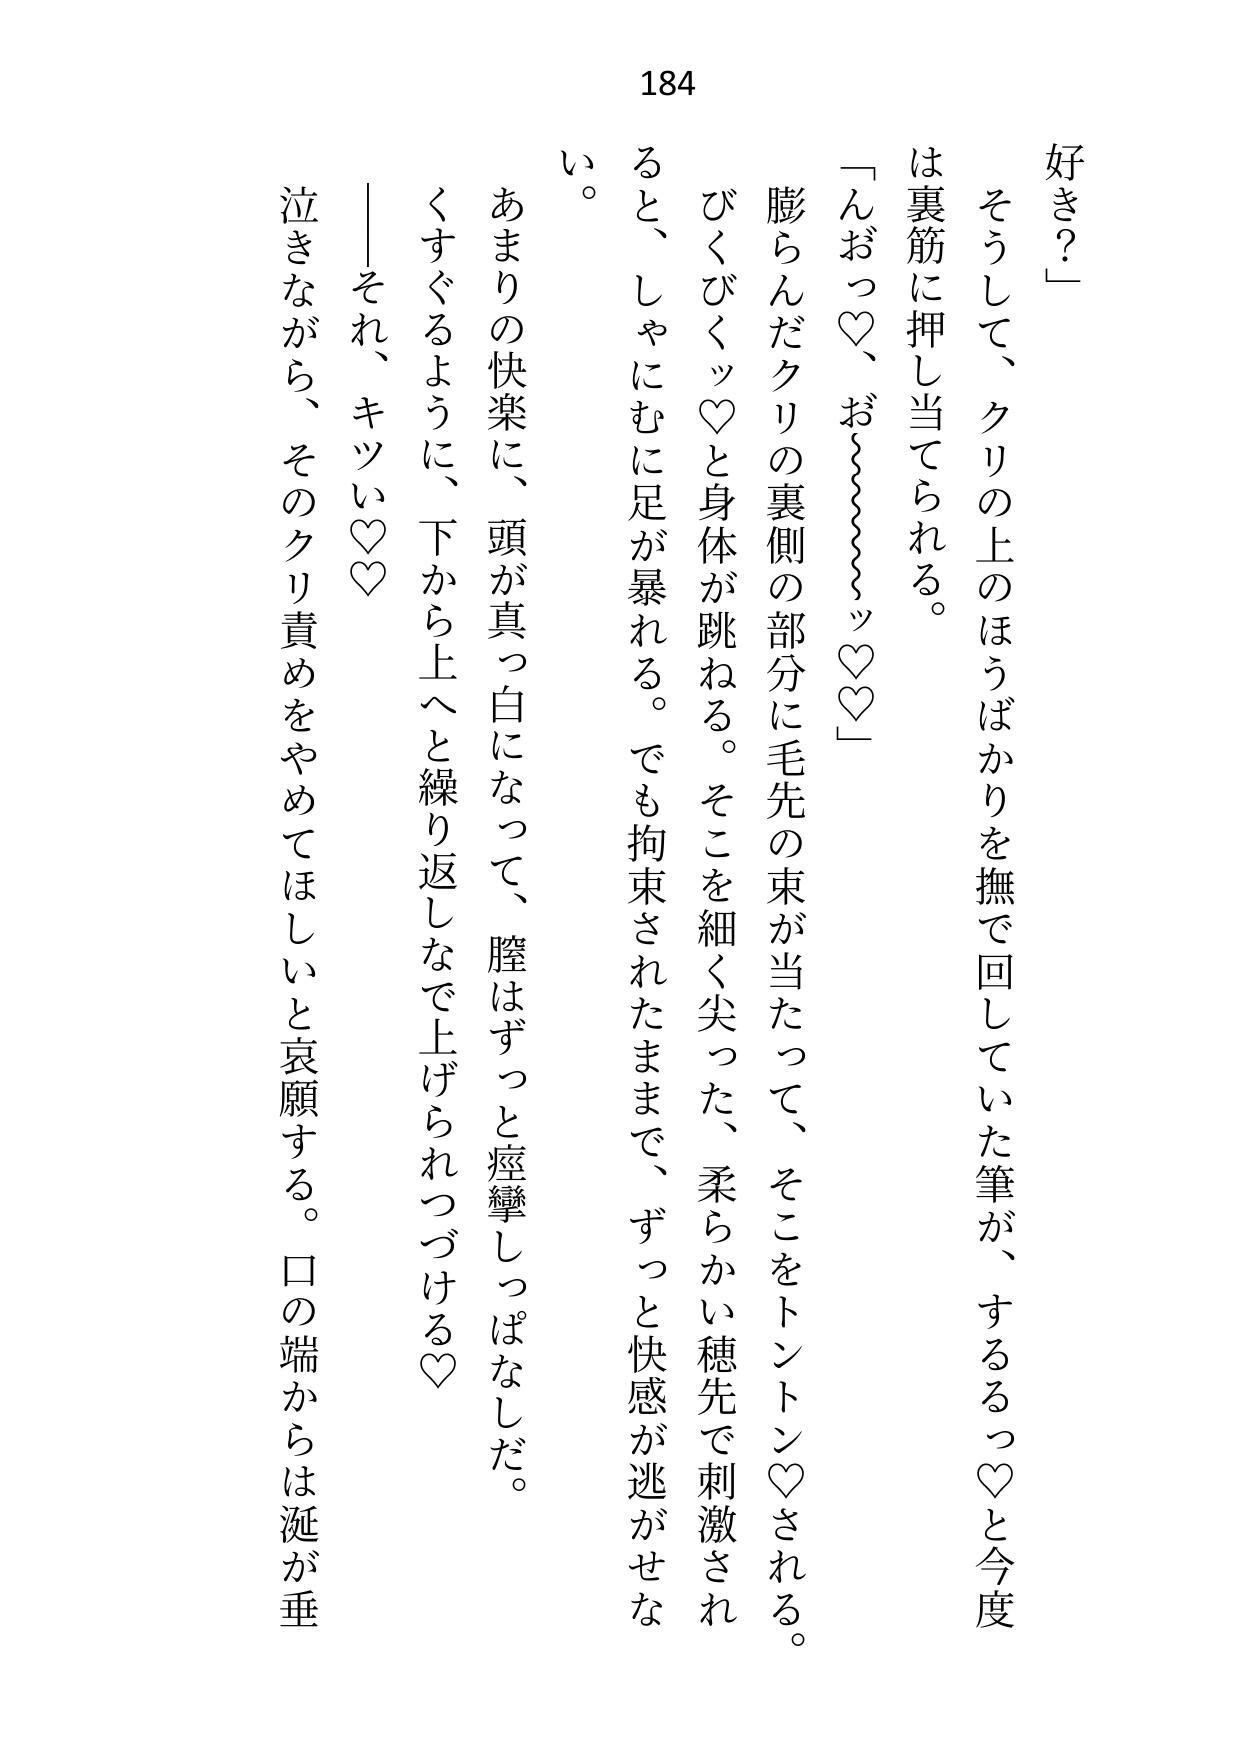 184
好き？」
　そうして、クリの上のほうばかりを撫で回していた筆が、するるっ♡と今度
は裏筋に押し当てられる。
「んおっ♡、お〜〜〜〜〜ッ♡♡」
　膨らんだクリの裏側の部分に毛先の束が当たって、そこをトントン♡される。
　びくびくッ♡と身体が跳ねる。そこを細く尖った、柔らかい穂先で刺激され
ると、しゃにむに足が暴れる。でも拘束されたままで、ずっと快感が逃がせな
い。
　あまりの快楽に、頭が真っ白になって、膣はずっと痙攣しっぱなしだ。
　くすぐるように、下から上へと繰り返しなで上げられつづける♡
　――それ、キツい♡♡
　泣きながら、そのクリ責めをやめてほしいと哀願する。口の端からは涎が垂